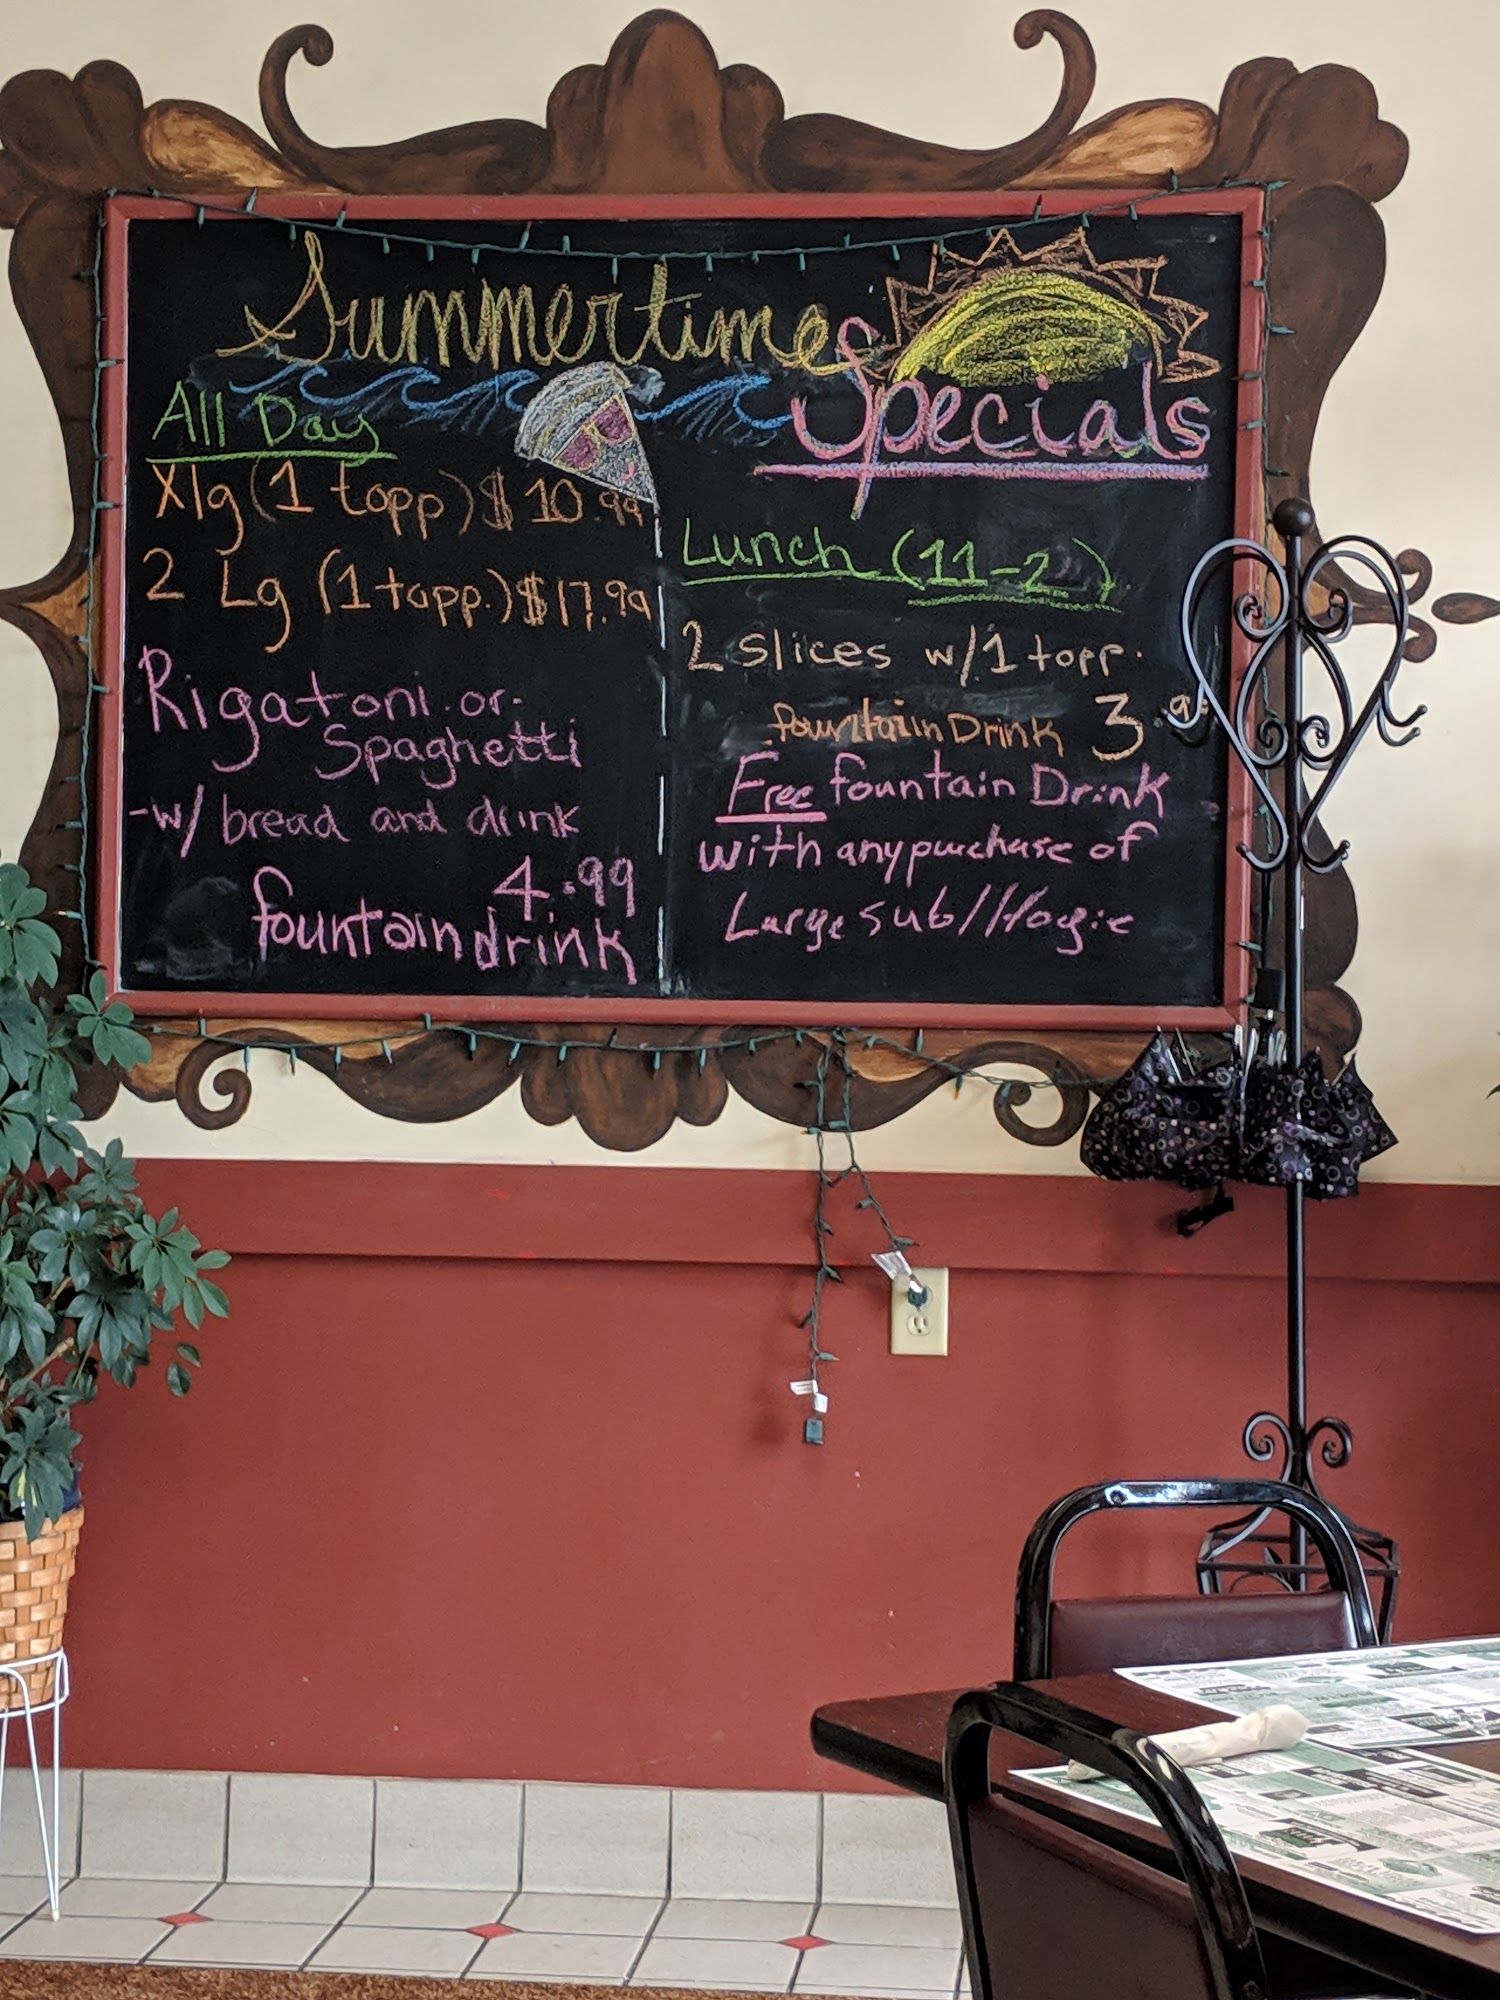 Summertime
Specials
All Day
Xlg (1 topp) $10.99
2 Lg (1 topp.) $17.99
Rigatoni or
Spaghetti
-w/ bread and drink
4.99
fountain drink
Lunch (11-2)
2 slices w/1 topp.
fountain Drink 3.9
Free fountain Drink
with any purchase of
Large sub/Hogie